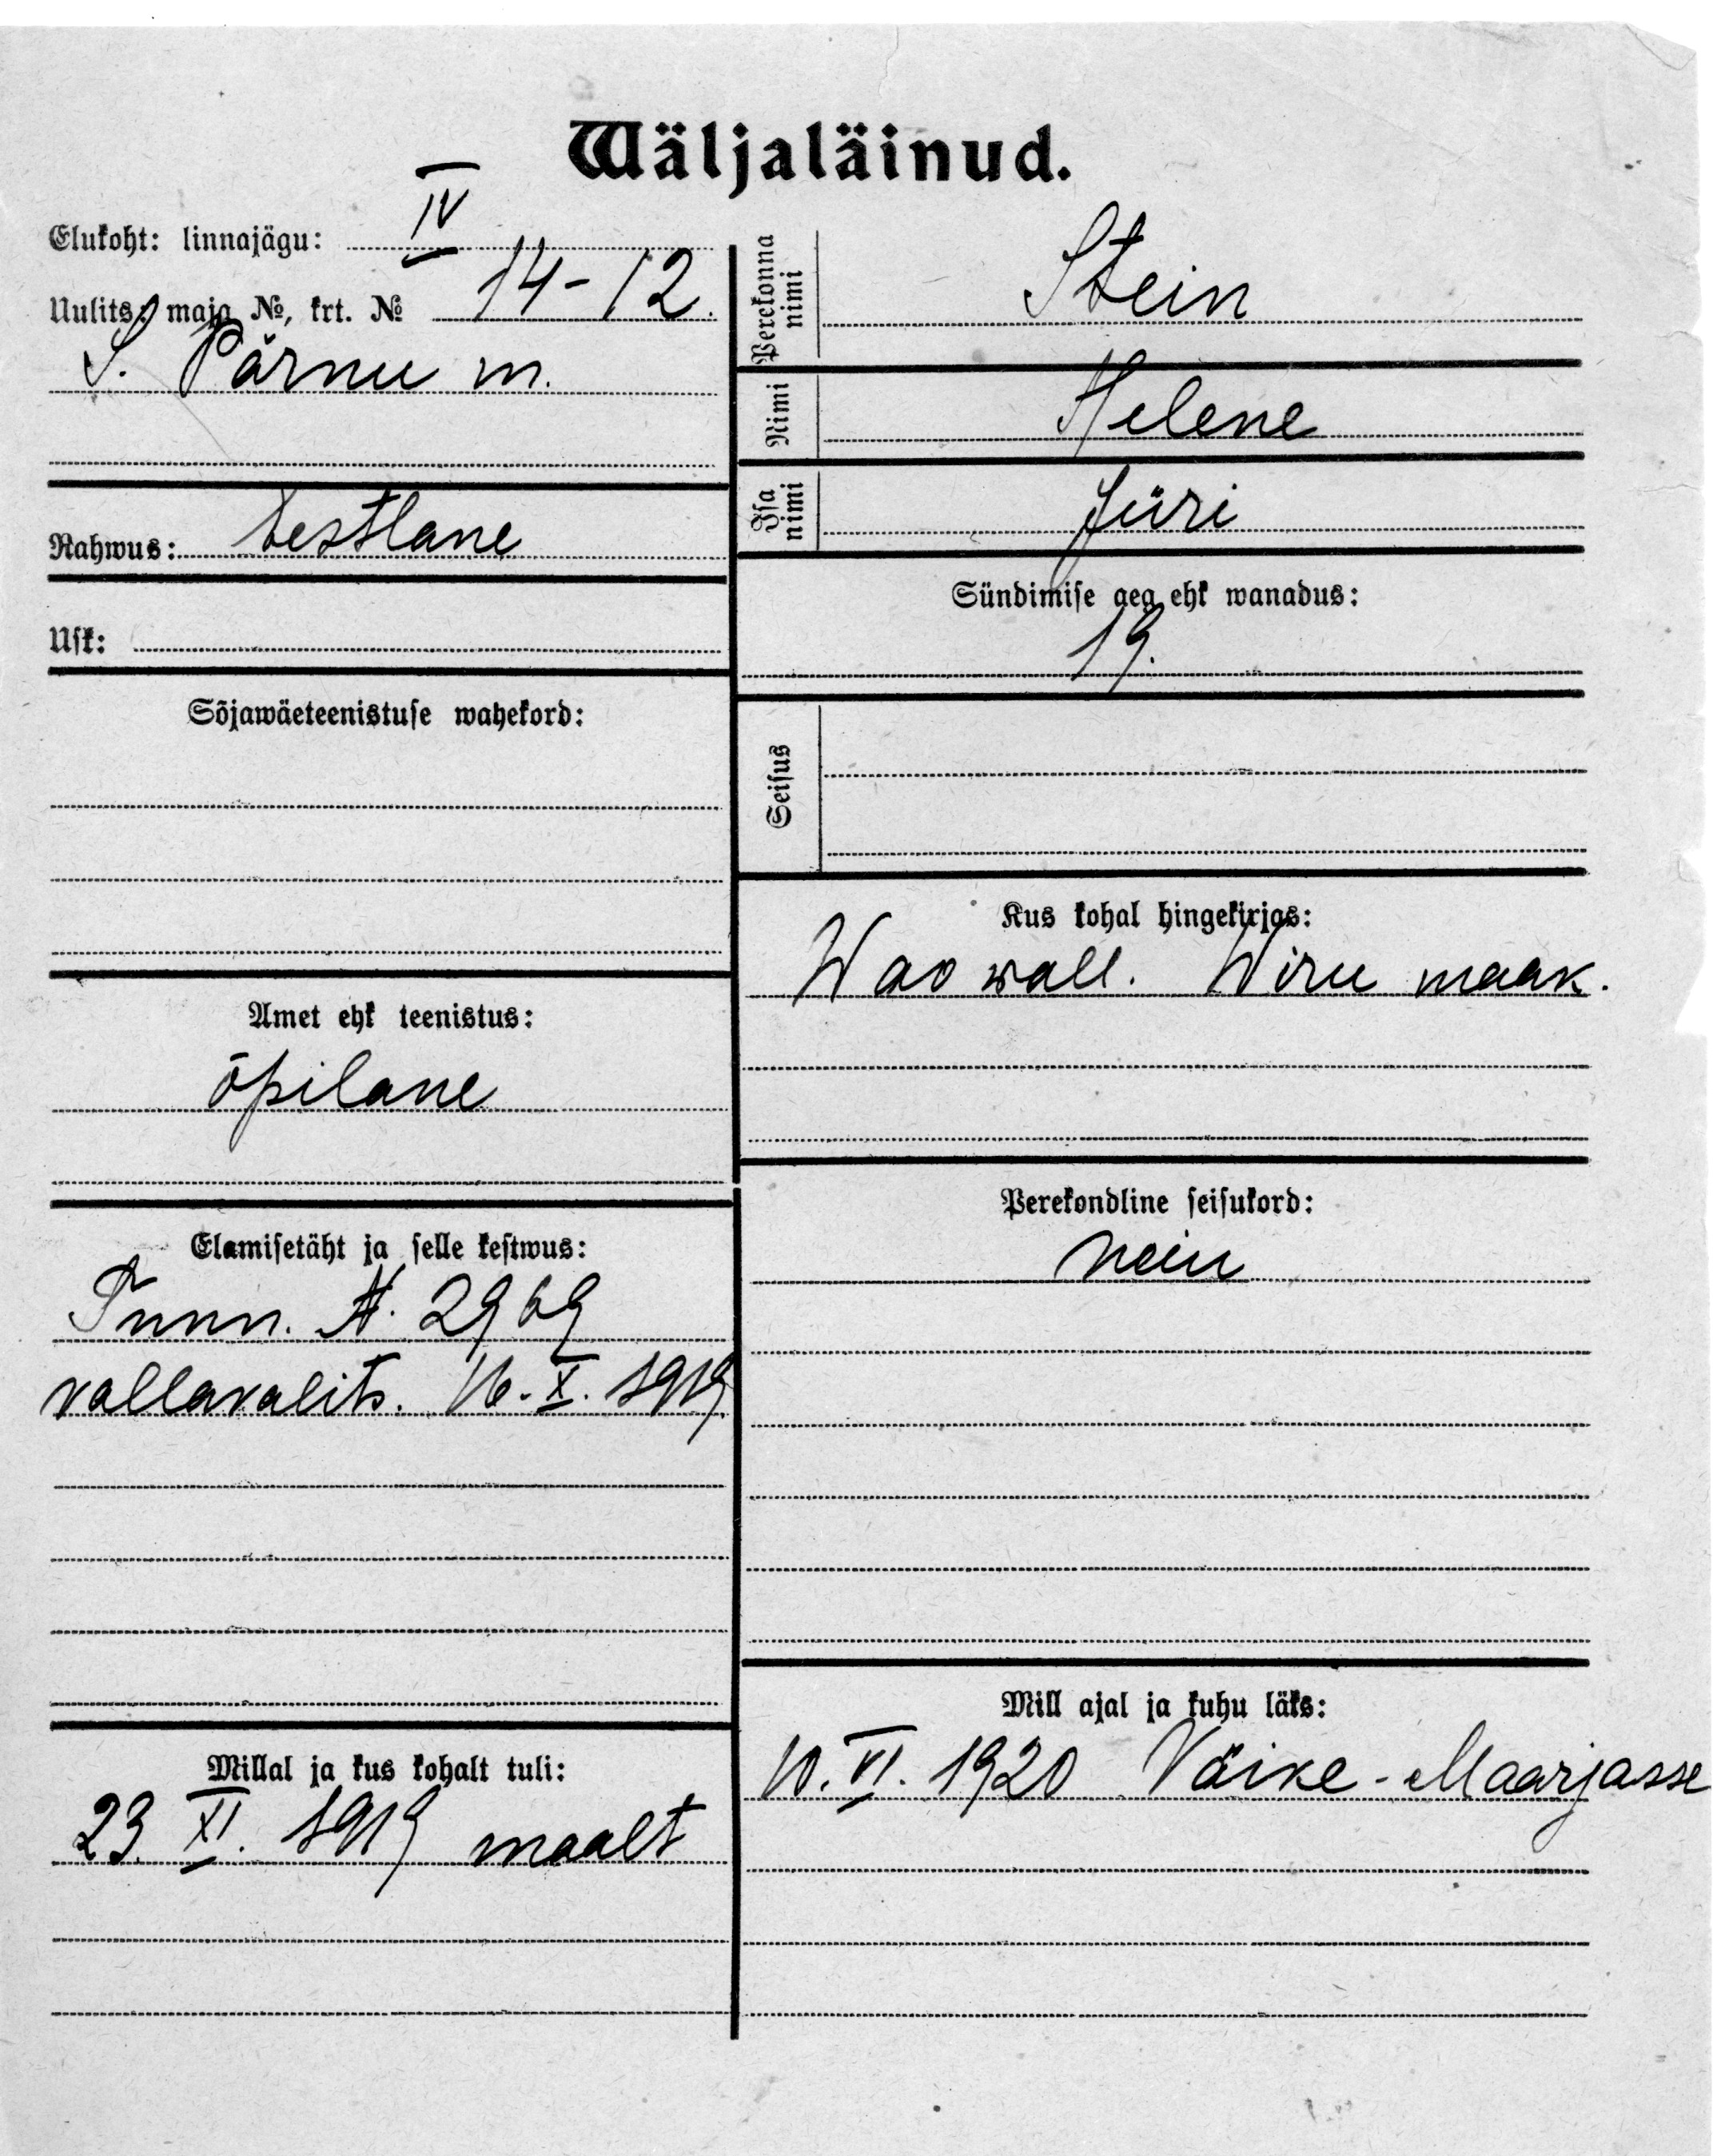 Wäljaläinud.
Elukoht: linnajägu: IV
Uulits, maja №, krt. № 14-12.
S. Pärnu m.
Rahwus: eestlane
Usk:
Sõjawäeteenistuse wahekord:
Amet ehk teenistus:
õpilane
Elamisetäht ja selle kestwus:
Tunn. №. 2969
vallavalits. 16.X.1919
Millal ja kus kohalt tuli:
23. XI. 1919 maalt
Perekonna nimi Stein
Nimi Helene
Isa nimi Jüri
Sündimise aeg ehk wanadus:
19.
Seisus
Kus kohal hingekirjas:
Wao wall. Wiru maak.
Perekondline seisukord:
neiu
Mill ajal ja kuhu läks:
10.VI.1920 Väike-Maarjasse